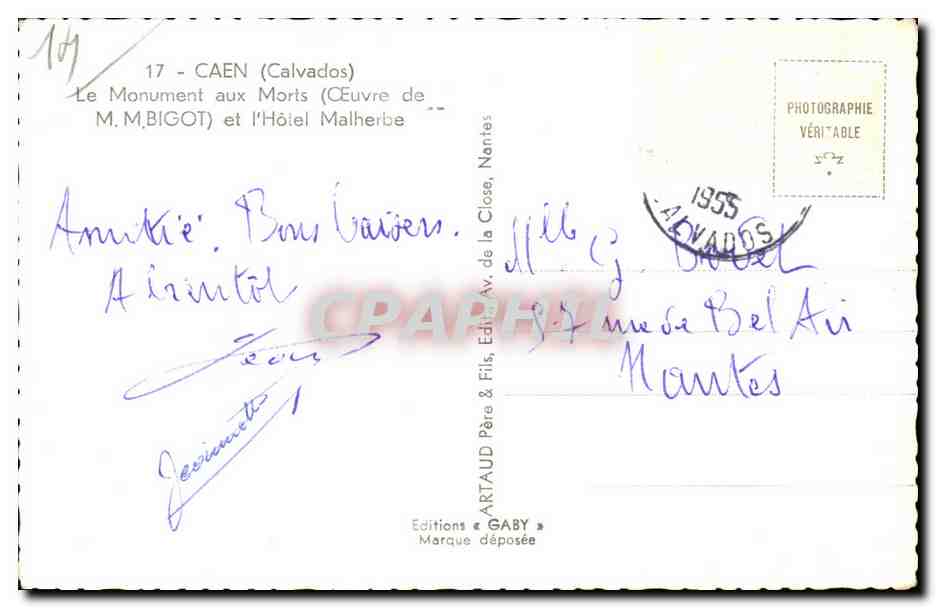 17 - CAEN (Calvados)
Le Monument aux Morts (Œuvre de
M. M. BIGOT) et l'Hôtel Malherbe
Amitié. Bons baisers.
A bientôt
Jeannette
ARTAUD Père & Fils, Edit. Av. de la Close, Nantes
Editions « GABY »
Marque déposée
PHOTOGRAPHIE
VÉRITABLE
1955
CALVADOS
Mlle G.
37 rue de Bel Air
Nantes
CPAPHIL